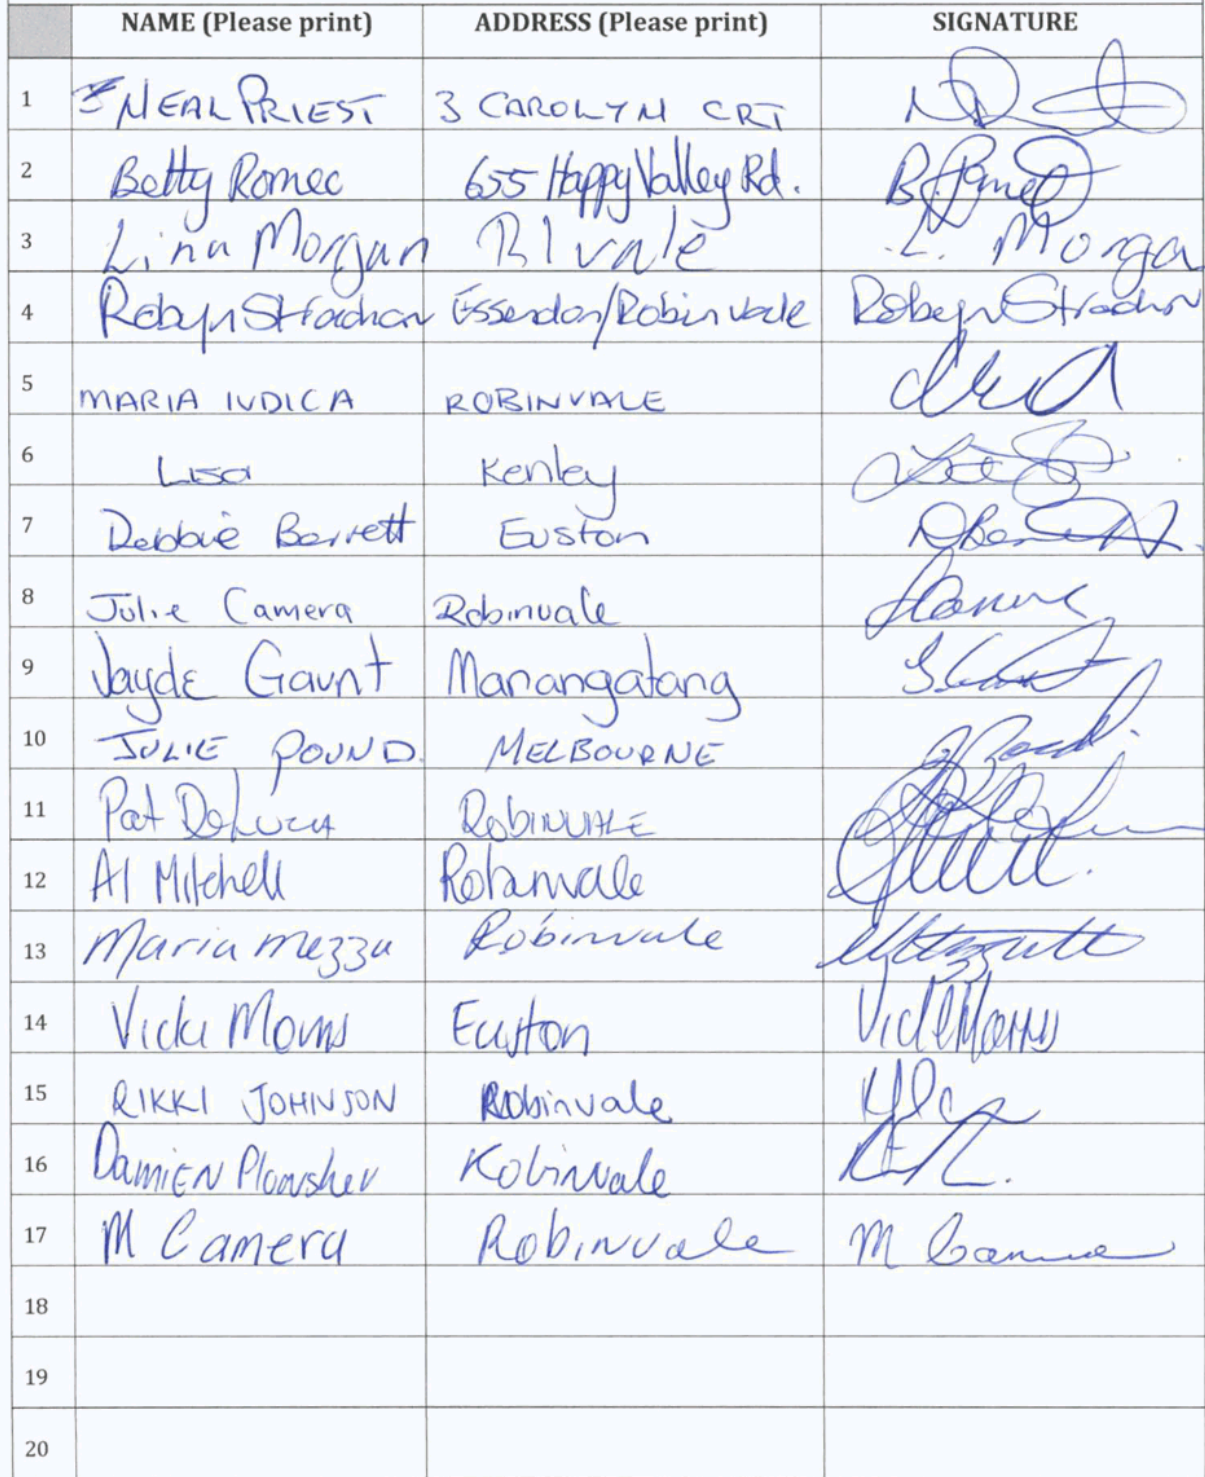 NAME (Please print) ADDRESS (Please print) SIGNATURE
1 NEAL PRIEST 3 CAROLYN CRT
2 Betty Romeo 655 Happy Valley Rd. B. Romeo
3 Lina Morgan R/vale L. Morga
4 Robyn Strachan Essendon/Robinvale Robyn Strachan
5 MARIA IUDICA ROBINVALE
6 Lisa Kenley
7 Debbie Barrett Euston
8 Julie Camera Robinvale
9 Jayde Gaunt Manangatang
10 JULIE POUND. MELBOURNE
11 Pat DeLuca ROBINVALE
12 Al Mitchell Robinvale
13 Maria Mezza Robinvale
14 Vicki Morris Euston Vicki Morris
15 RIKKI JOHNSON Robinvale
16 Damien Robinvale
17 M Camera Robinvale M Camera
18
19
20